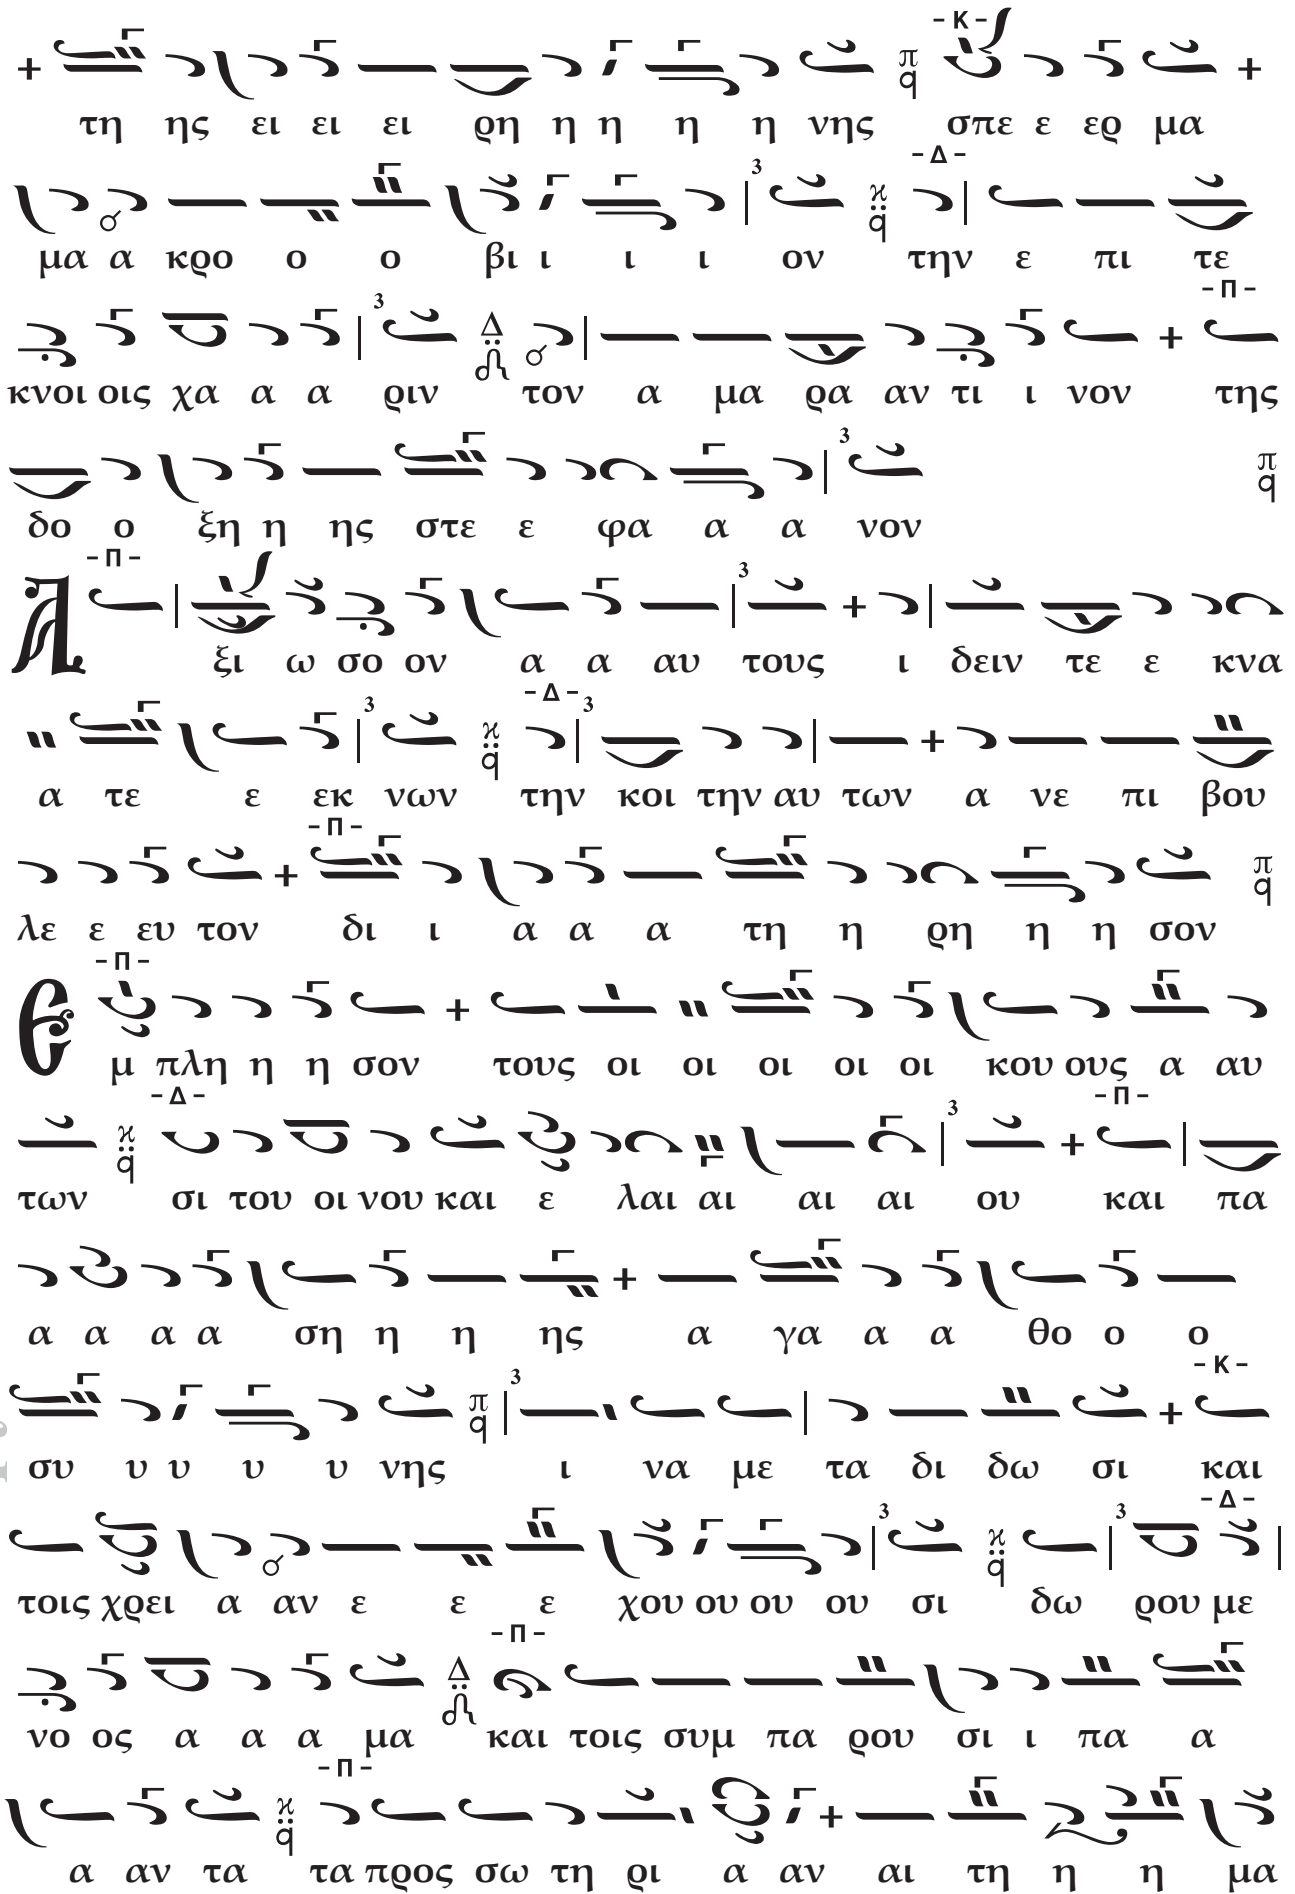 τη ης ει ει ει ρη η η η η νης σπε ε ερ μα
μα α κρο ο ο βι ι ι ι ον την ε πι τε
κνοι οις χα α α α ριν τον α μα ρα αν τι ι νον της
δο ο ξη η ης στε ε φα α α νον
Α ξι ω σο ον α α αυ τους ι δειν τε ε κνα
α τε ε εκ νων την κοι την αυ των α νε πι βου
λε ε ευ τον δι ι α α α τη η ρη η η σον
Ε μ πλη η η σον τους οι οι οι οι οι κου ους α αυ
των σι του οι νου και ε λαι αι αι αι ου και πα
α α α α ση η η ης α γα α α θο ο ο
συ υ υ υ υ νης ι να με τα δι δω σι και
τοις χρει α αν ε ε ε χου ου ου ου σι δω ρου με
νο ος α α α μα και τοις συμ πα ρου σι ι πα α
α αν τα τα προς σω τη ρι α αν αι τη η η μα